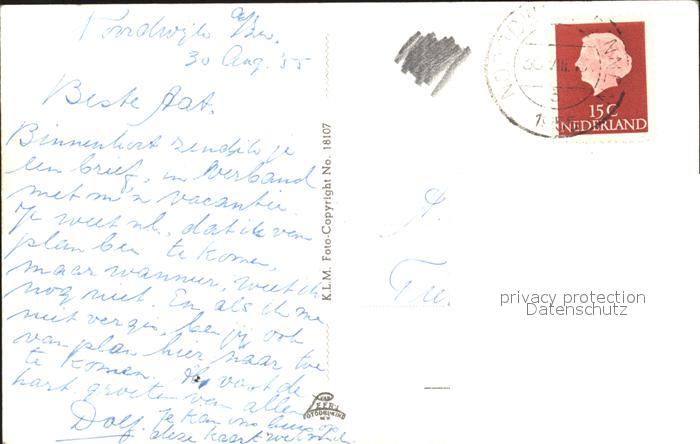 Noordwijk a/Zee
30 Aug. '55
Beste Aat.
Binnenkort zend ik je
een brief, in verband
met m'n vacantie.
Je weet nl. dat ik van
plan ben te komen,
maar wanneer, weet ik
nog niet. En als ik me
niet vergis, ben jij ook
van plan hier naar toe
te komen. van de
hart. groeten van allen
Dolf. Je kan ons huis op
deze kaart wel
K.L.M. Foto-Copyright No. 18107
VAN
LEER'S
FOTODRUKIND
N.V.
NOORDW
1955
15 C
NEDERLAND
A.
privacy protection
Datenschutz